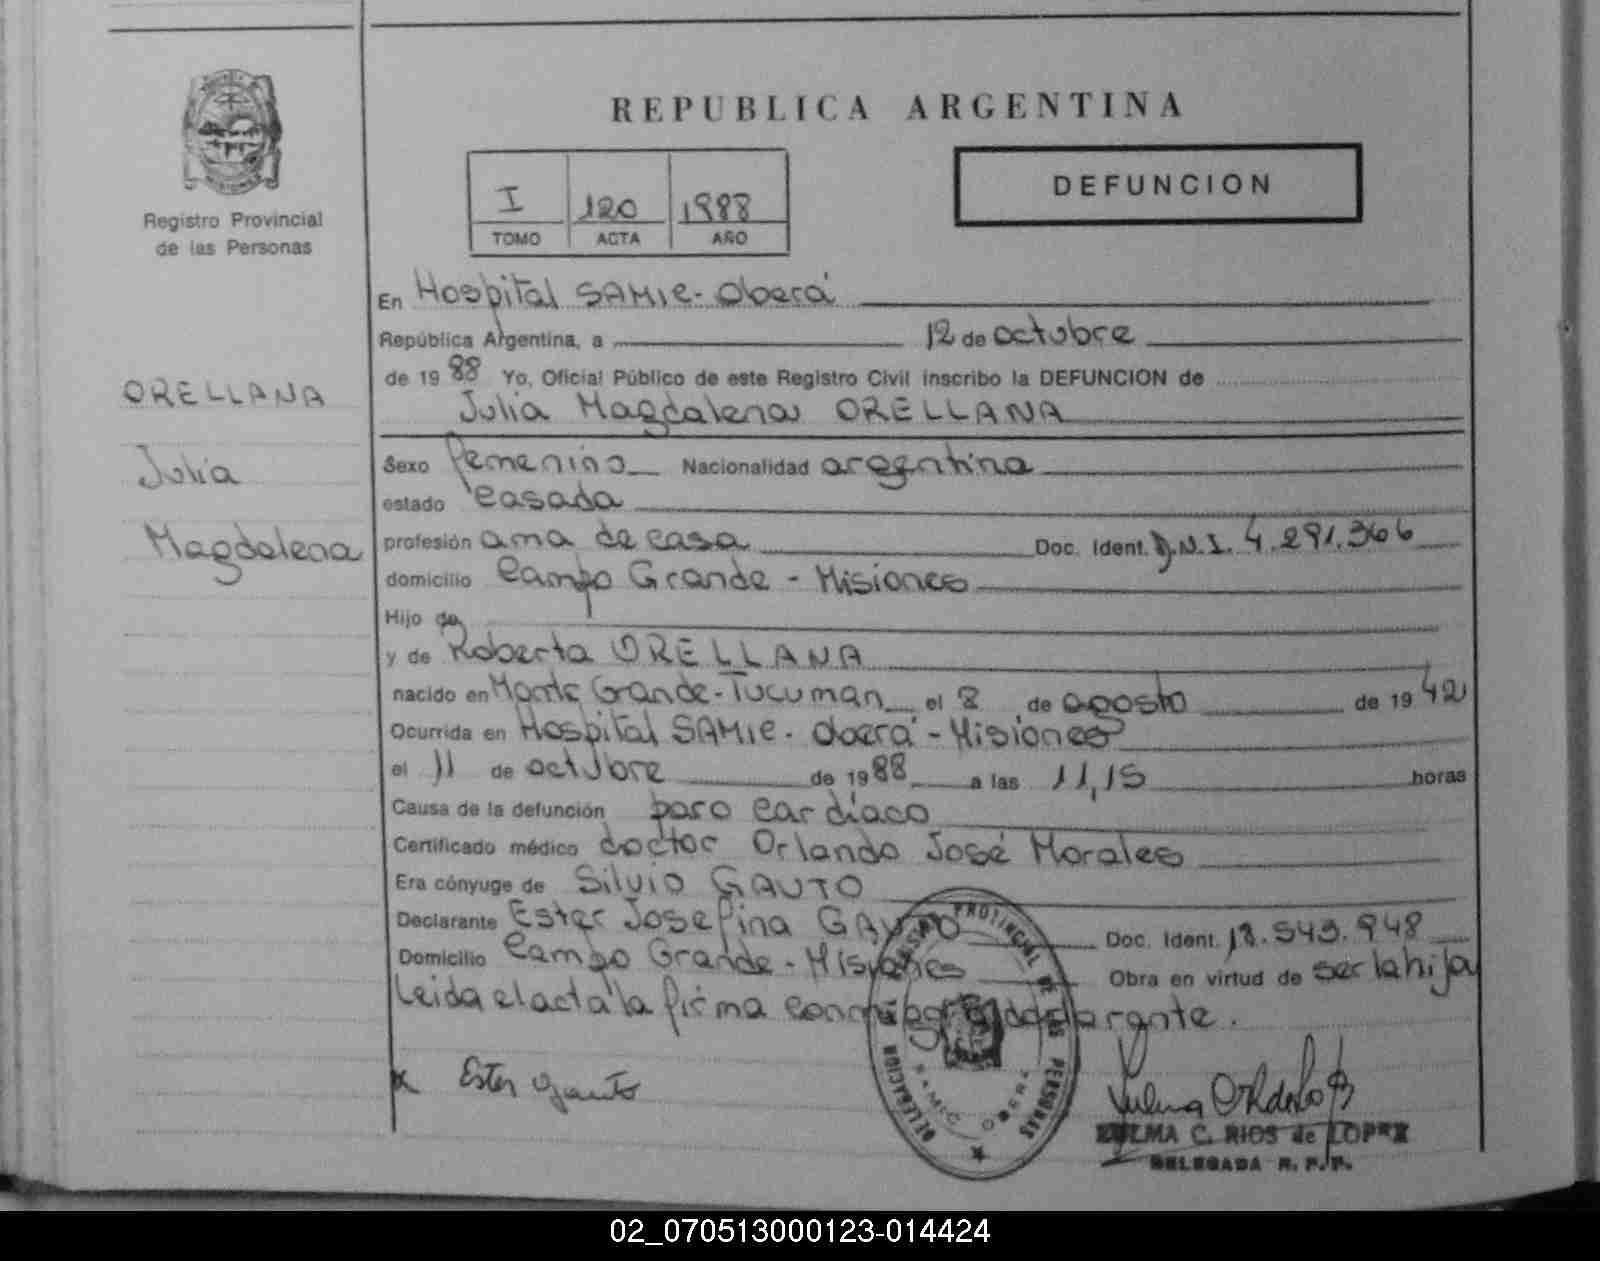 REPUBLICA ARGENTINA
I 120 1988
TOMO ACTA AÑO
DEFUNCION
MISIONES
Registro Provincial
de las Personas
ORELLANA
Julia
Magdalena
En Hospital SAMIC - Oberá
República Argentina, a 12 de octubre
de 19 88 Yo, Oficial Público de este Registro Civil inscribo la DEFUNCION de
Julia Magdalena ORELLANA
Sexo femenino Nacionalidad argentina
estado casada
profesión ama de casa Doc. Ident. D.N.I. 4.291.366
domicilio Campo Grande - Misiones
Hijo de
y de Roberta ORELLANA
nacido en Monte Grande - Tucuman el 8 de agosto de 19 42
Ocurrida en Hospital SAMIC - Oberá - Misiones
el 11 de octubre de 19 88 a las 11,15 horas
Causa de la defunción paro cardíaco
Certificado médico doctor Orlando José Morales
Era cónyuge de Silvio GAUTO
Declarante Ester Josefina GAUTO Doc. Ident. 18.543.948
Domicilio Campo Grande - Misiones Obra en virtud de ser la hija
Leida el acta la firma conmigo la declarante.
x Ester Gauto
DELEGACION PROVINCIAL DE LAS PERSONAS
SAMIC OBERA
ZULMA C. RIOS de LOPEZ
DELEGADA R. P. P.
02_070513000123-014424